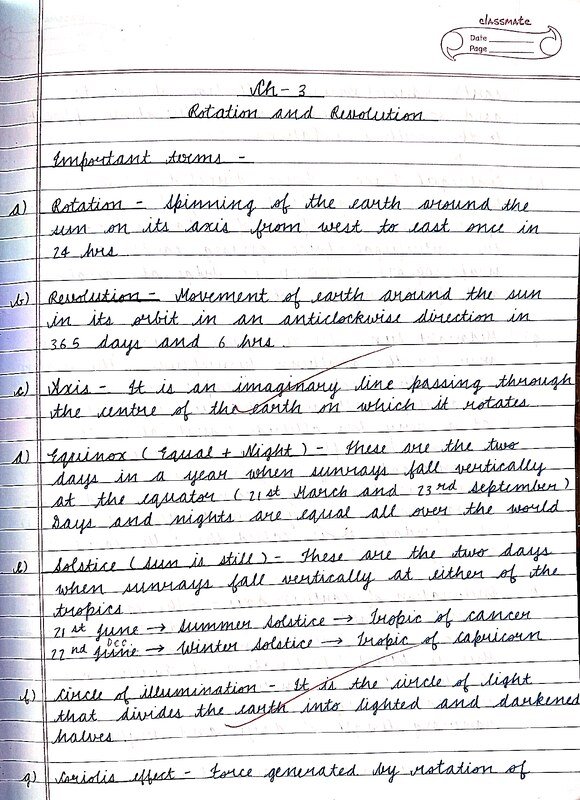 classmate
Date
Page
Ch - 3
Rotation and Revolution
Important terms -
a) Rotation - Spinning of the earth around the
sun on its axis from west to east once in
24 hrs
b) Revolution - Movement of earth around the sun
in its orbit in an anticlockwise direction in
365 days and 6 hrs.
c) Axis - It is an imaginary line passing through
the centre of the earth on which it rotates
d) Equinox (Equal + Night) - These are the two
days in a year when sunrays fall vertically
at the equator (21st March and 23rd September)
Days and nights are equal all over the world
e) Solstice (sun is still) - These are the two days
when sunrays fall vertically at either of the
tropics
21st June → Summer Solstice → Tropic of cancer
Dec
22nd June → Winter Solstice → Tropic of Capricorn
f) Circle of illumination - It is the circle of light
that divides the earth into lighted and darkened
halves
g) Coriolis effect - Force generated by rotation of